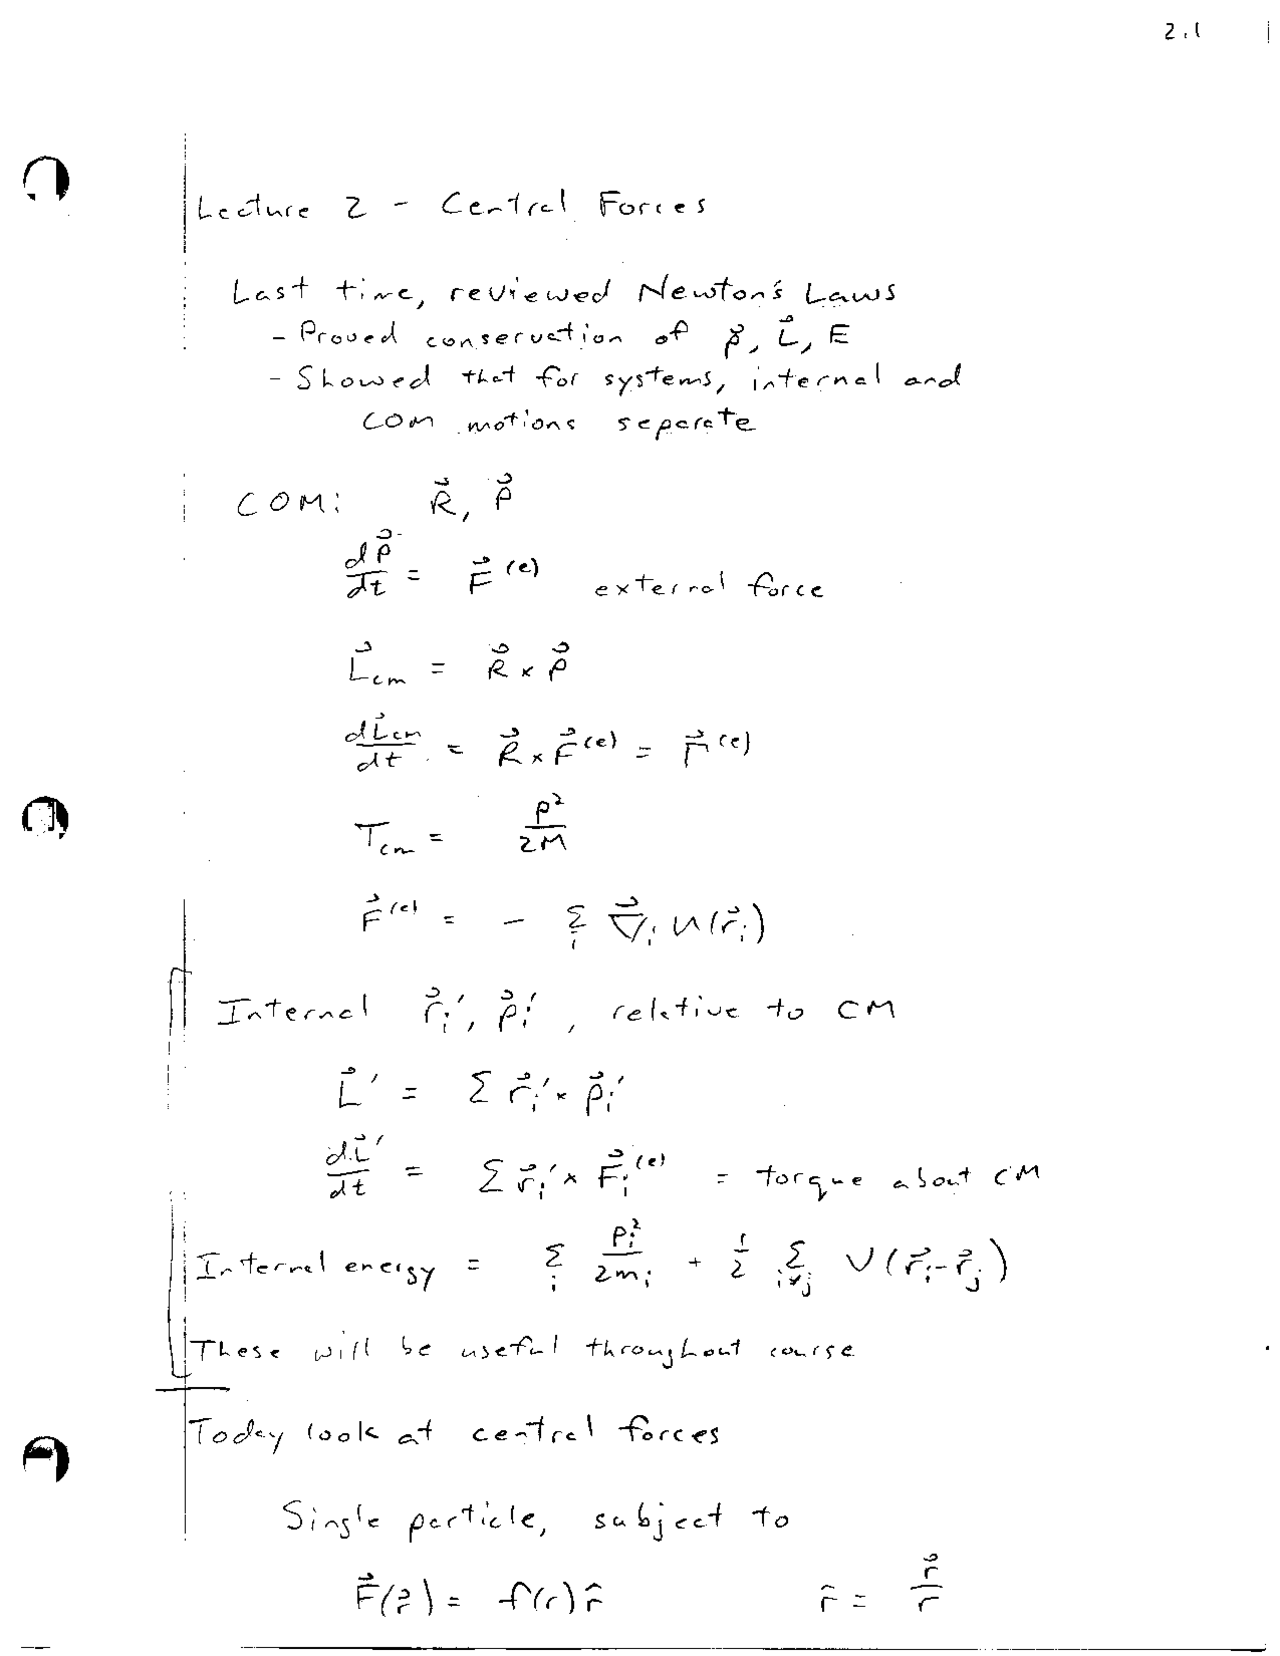 2.1
Lecture 2 - Central Forces
Last time, reviewed Newton's Laws
- Proved conservation of p⃗, L⃗, E
- Showed that for systems, internal and
COM motions separate
COM: R⃗, P⃗
dP⃗/dt = F⃗^(e) external force
L⃗_cm = R⃗ × P⃗
dL⃗_cm/dt = R⃗ × F⃗^(e) = Γ⃗^(e)
T_cm = P²/2M
F⃗^(e) = - Σ_i ∇⃗_i U(r⃗_i)
Internal r⃗_i', p⃗_i', relative to CM
L⃗' = Σ r⃗_i' × p⃗_i'
dL⃗'/dt = Σ r⃗_i' × F⃗_i^(e) = torque about CM
Internal energy = Σ_i p_i²/2m_i + 1/2 Σ_{i≠j} V(r⃗_i - r⃗_j)
These will be useful throughout course
Today look at central forces
Single particle, subject to
F⃗(r⃗) = f(r) r̂ r̂ = r⃗/r